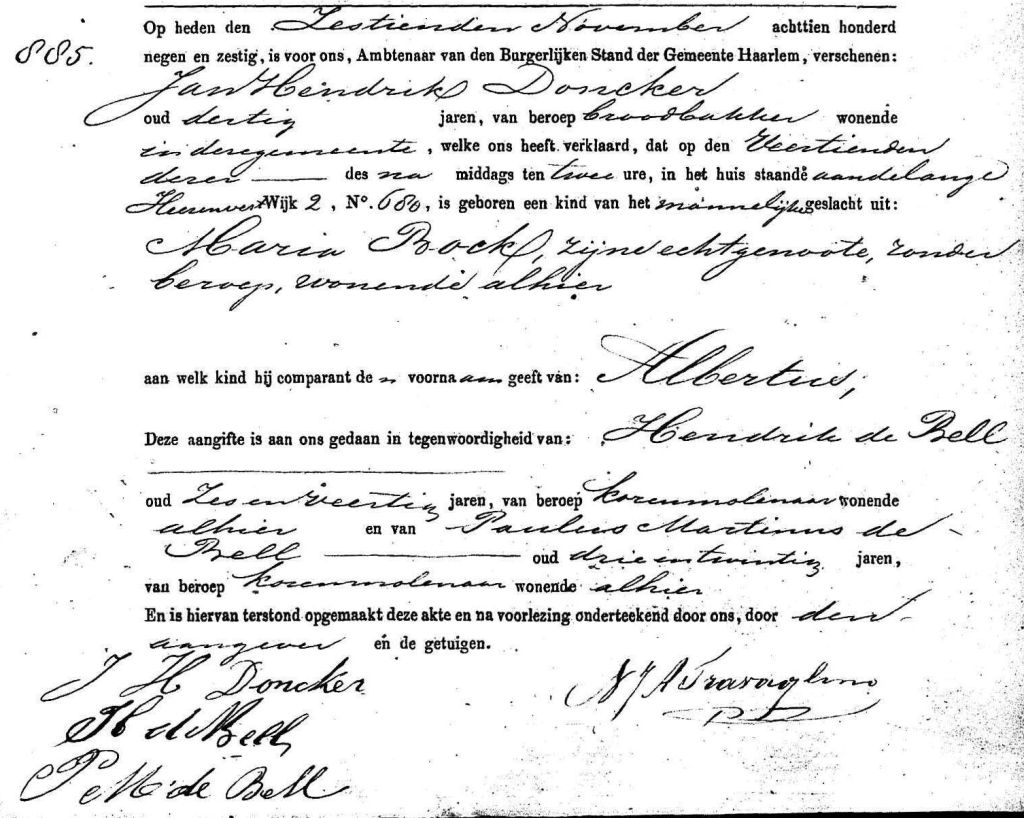 Op heden den Zestienden November achttien honderd
885.
negen en zestig, is voor ons, Ambtenaar van den Burgerlijken Stand der Gemeente Haarlem, verschenen:
Jan Hendrik Doncker
oud dertig jaren, van beroep broodbakker wonende
in deze gemeente, welke ons heeft verklaard, dat op den Veertienden
dezer — des na middags ten twee ure, in het huis staande aan de lange
Heerenvest Wijk 2, No. 680, is geboren een kind van het mannelijke geslacht uit:
Maria Bock, zijne echtgenoote, zonder
beroep, wonende alhier
aan welk kind hij comparant de n voornaam geeft van: Albertus;
Deze aangifte is aan ons gedaan in tegenwoordigheid van: Hendrik de Bell
oud Zes en Veertig jaren, van beroep korenmolenaar wonende
alhier en van Paulus Martinus de
Bell — oud drie en twintig jaren,
van beroep korenmolenaar wonende alhier
En is hiervan terstond opgemaakt deze akte en na voorlezing onderteekend door ons, door den
aangever en de getuigen.
J H Doncker N J A Travaglino
H de Bell
P M de Bell